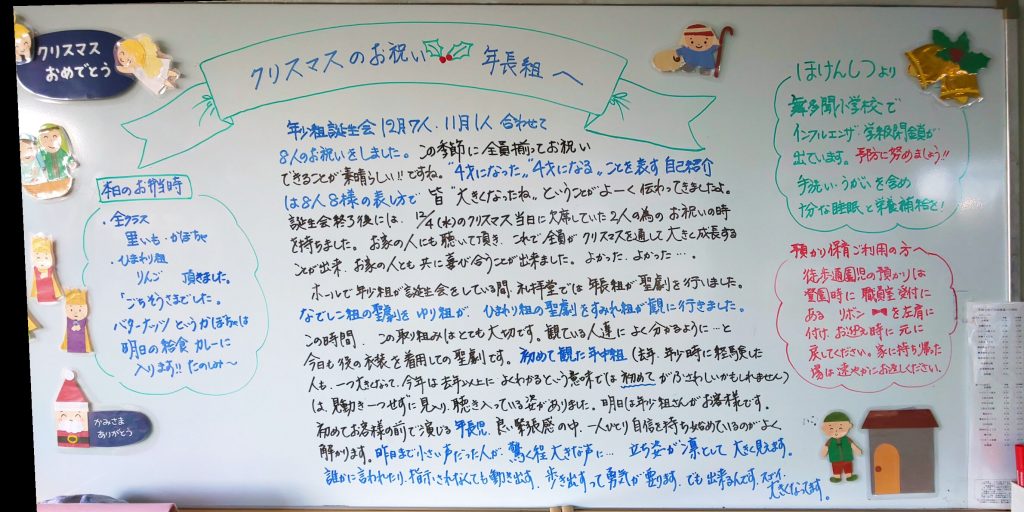 クリスマス
おめでとう
クリスマスのお祝い 年長組へ
年少組誕生会 12月7人、11月1人 合わせて
8人のお祝いをしました。この季節に全員揃ってお祝い
できることが素晴らしい!!ですね。"4才になった""4才になる"ことを表す自己紹介
は8人8様の表し方で 皆"大きくなったね"ということがよーく伝わってきましたよ。
誕生会終了後には、12/4(水)のクリスマス当日に欠席していた2人の為のお祝いの時
を持ちました。お家の人にも聴いて頂き、これで全員がクリスマスを通して大きく成長する
ことが出来、お家の人とも共に喜び合うことが出来ました。よかった、よかった…。
ホールで年少組が誕生会をしている間、礼拝堂では年長組が聖劇を行いました。
なでしこ組の聖劇をゆり組が、ひまわり組の聖劇をすみれ組が観に行きました。
この時間、この取り組みはとても大切です。観ている人達によく分かるように…と
今日も役の衣装を着用しての聖劇です。初めて観た年中組(去年、年少時に経験した
人も、一つ大きくなって、今年は去年以上によくわかるという意味では初めてがふさわしいかもしれません)
は、身動き一つせずに見入り、聴き入っている姿がありました。明日は年少組さんがお客様です。
初めてお客様の前で演じる年長児、良い緊張感の中、一人ひとり自信を持ち始めているのがよく
解かります。昨日まで小さい声だった人が、驚く程大きな声に… 立ち姿が凛として大きく見えます。
誰かに言われたり、指示されなくても動き出す、歩き出すって勇気が要ります、でも出来るんです、スゴイ、
大きくなってます。
本日のお弁当時
・全クラス
里いも・かぼちゃ
・ひまわり組
りんご 頂きました。
「ごちそうさまでした。
バターナッツというかぼちゃは
明日の給食カレーに
入ります!!たのしみ〜
かみさま
ありがとう
ほけんしつより
舞多聞小学校で
インフルエンザ 学級閉鎖が
出ています。予防に努めましょう!!
手洗い・うがいを含め
十分な睡眠と栄養補給を!
預かり保育ご利用の方へ
徒歩通園児の預かりは
登園時に職員室受付に
ある リボン を左肩に
付け、お迎え時に元に
戻してください。家に持ち帰った
場合は速やかにお返しください。